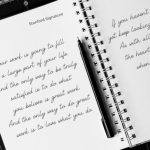 Stamford Signature
Your work is going to fill
a large part of your life
and the only way to be truly
satisfied is to do what
you believe is great work.
And the only way to do great
work is to love what you do
If you haven't
yet keep looking
As with all
the heart
when